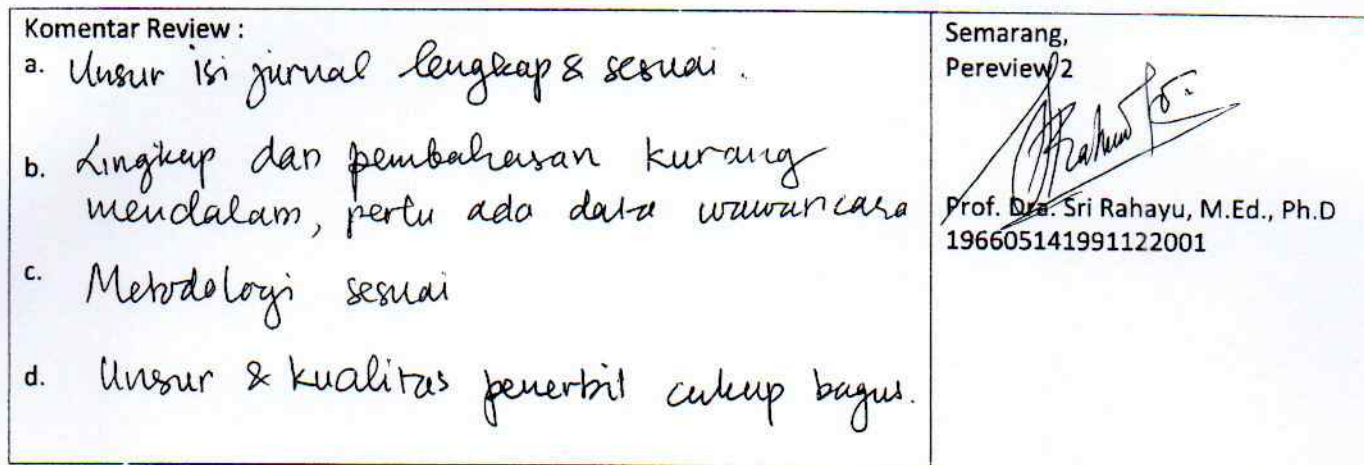 Komentar Review :
a. Unsur isi jurnal lengkap & sesuai.
b. Lingkup dan pembahasan kurang
mendalam, perlu ada data wawancara
c. Metodologi sesuai
d. Unsur & kualitas penerbit cukup bagus.
Semarang,
Pereview 2
Prof. Dra. Sri Rahayu, M.Ed., Ph.D
196605141991122001